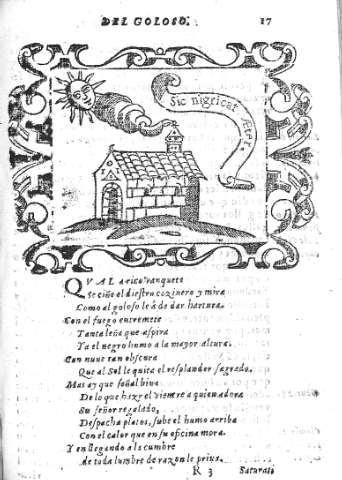 DEL GOLOSO. 17
Sic nigricat Æter.
QVAL a rico vanquete
Se ciñe el diestro cozinero y mira
Como al goloso le à de dar hartura.
Con el fuego entremete
Tanta leña que aspira
Ya el negro humo a la mayor altura.
Con nuue tan obscura
Que al Sol le quita el resplandor sagrado.
Mas ay que señal biua
De lo que haze el vientre a quien adora
Su señor regalado,
Despacha platos, sube el humo arriba
Con el calor que en su oficina mora.
Y en llegando a la cumbre
de toda lumbre de razon le priua.
R 3 Saturató